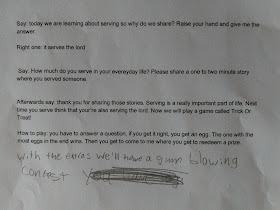 Say: today we are learning about serving so why do we share? Raise your hand and give me the
answer.
Right one: it serves the lord
Say: How much do you serve in your evereyday life? Please share a one to two minute story
where you served someone.
Afterwards say: thank you for sharing those stories. Serving is a really important part of life. Next
time you serve think that you're also serving the lord. Now we will play a game called Trick Or
Treat!
How to play: you have to answer a question, if you get it right, you get an egg. The one with the
most eggs in the end wins. Then you get to come to me where you get to reedeem a prize.
with the extras we'll have a gum blowing
contest